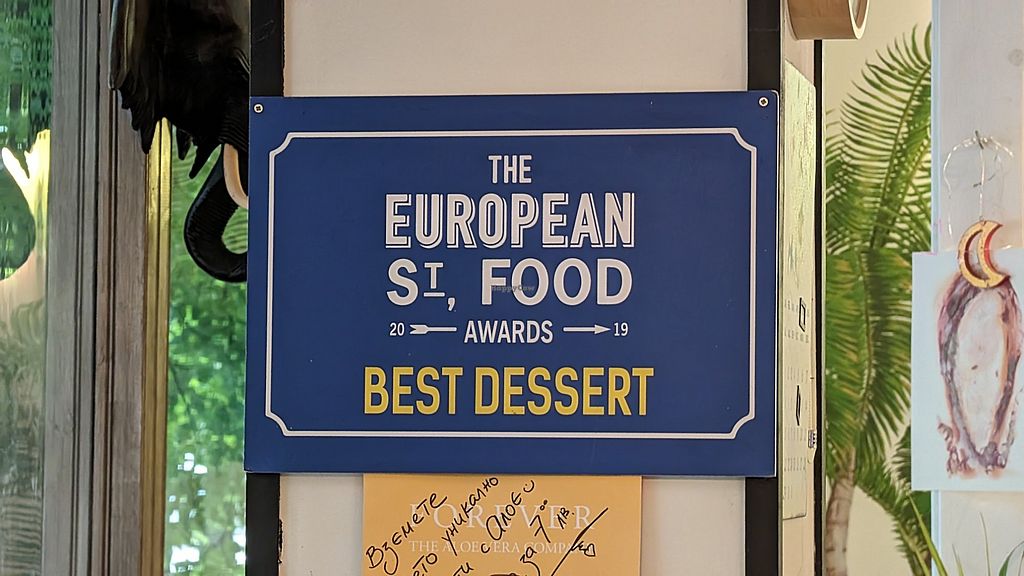 THE
EUROPEAN
ST, FOOD
20 AWARDS 19
BEST DESSERT
FOREVER
THE ALOE VERA COMPANY
Вземете
уникално
с Алоес
за 7⁰⁰ лв